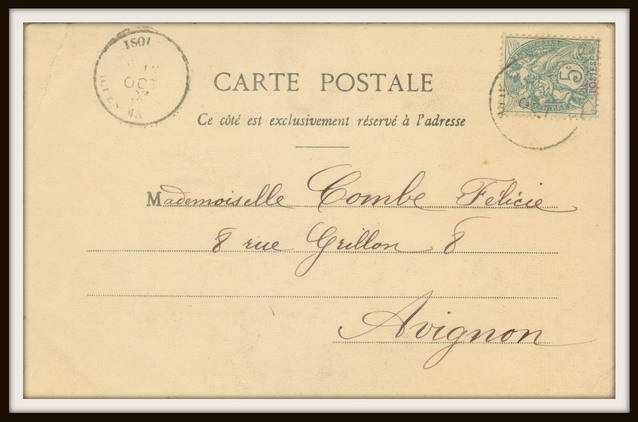 CARTE POSTALE
Ce côté est exclusivement réservé à l'adresse
Mademoiselle Combe Félicie
8 rue Grillon 8
Avignon
5